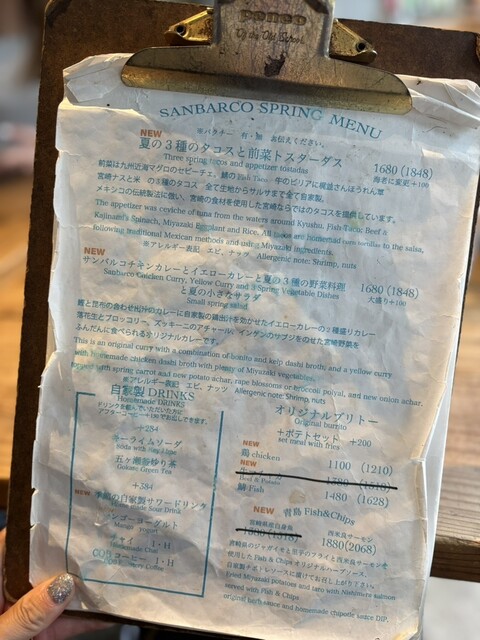 penco
SANBARCO SPRING MENU
※パクチー 有・無 お伝えください。
NEW
夏の３種のタコスと前菜トスターダス
Three spring tacos and appetizer tostadas
1680 (1848)
海老に変更+100
前菜は九州近海マグロのセビーチェ。
宮崎ナスと米 の３種のタコス 全て生地からサルサまで全て自家製。
メキシコの伝統製法に倣い、宮崎の食材を使用した宮崎ならではのタコスを提供しています。
The appetizer was ceviche of tuna from the waters around Kyushu, Fish Taco, Beef &
Kajinami's Spinach, Miyazaki Eggplant and Rice, All tacos are homemade corn tortillas to the salsa,
following traditional Mexican methods and using Miyazaki ingredients.
※アレルギー表記 エビ、ナッツ Allergenic note: Shrimp, nuts
NEW
サンバルコチキンカレーとイエローカレーと夏の３種の野菜料理
Sanbarco Chicken Curry, Yellow Curry and 3 Spring Vegetable Dishes
と夏の小さなサラダ
Small spring salad
1680 (1848)
大盛り+100
鰹と昆布の合わせ出汁のカレーに自家製の鶏出汁を効かせたイエローカレーの２種盛りカレー
落花生とブロッコリー、ズッキーニのアチャール、インゲンのサブジをのせた宮崎野菜を
ふんだんに食べられるオリジナルカレーです。
This is an original curry with a combination of bonito and kelp dashi broth and a yellow curry
with homemade chicken dashi broth with plenty of Miyazaki vegetables.
spring carrot and new potato achar, rape blossoms or broccoli poiyal, and new onion achar.
※アレルギー表記 エビ、ナッツ Allergenic note: Shrimp, nuts
自家製 DRINKS
Homemade DRINKS
+284
ライムソーダ
Soda with
五ヶ瀬釜炒り茶
Gokase Green Tea
+384
NEW 季節の自家製サワードリンク
Homemade Sour Drink
マンゴーヨーグルト
Mango yogurt
チャイ I・H
Homemade Chai
コーヒー I・H
Coffee
オリジナルブリトー
Original burrito
+ポテトセット +200
set meal with fries
NEW
鶏 chicken 1100 (1210)
NEW
Beef & Potato
鯖 Fish 1480 (1628)
NEW 青島 Fish&Chips
宮崎県産白身魚
西米良サーモン
1880(2068)
宮崎県産のジャガイモと里芋のフライと西米良サーモンを
使用した Fish & Chips オリジナルハーブソース、
自家製チポトレソースに漬けてお召し上がり下さい。
Fried Miyazaki potatoes and taro with Nishimera salmon
served with Fish & Chips
original herb sauce and homemade chipotle sauce DIP.